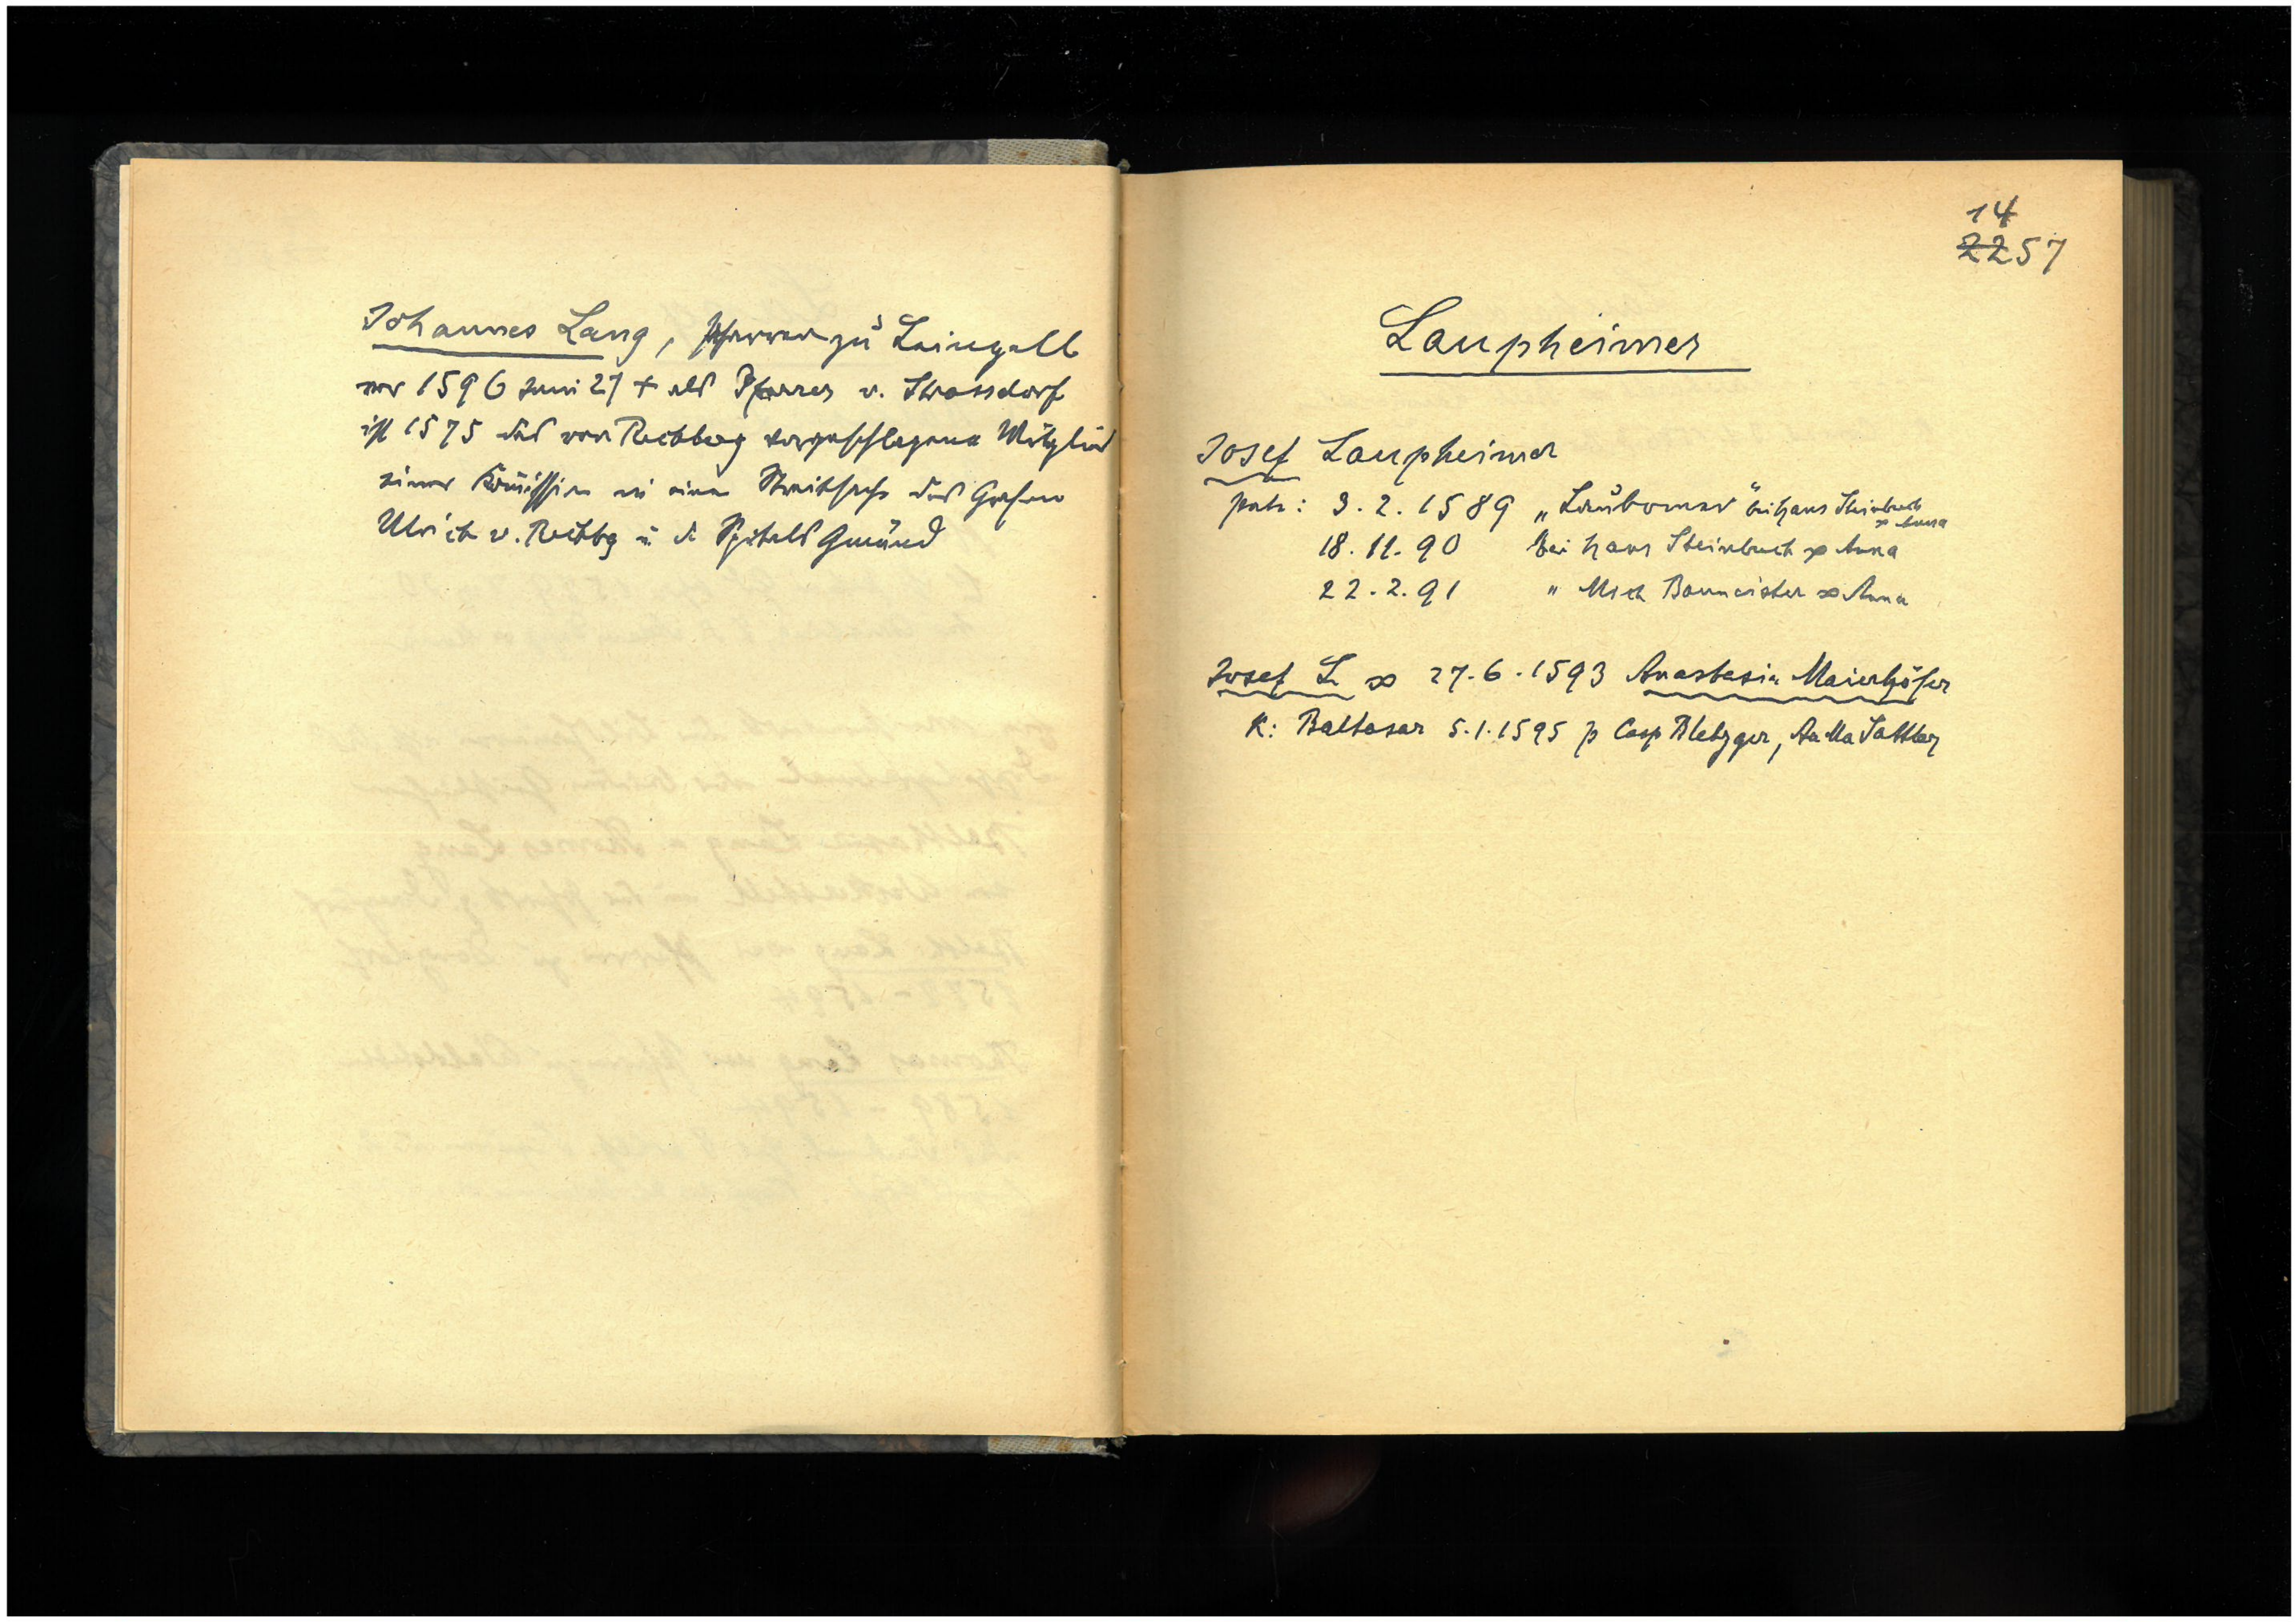 Johannes Lang, Pfarrer zu Leinzell
vor 1596 Juni 27 + als Pfarrer v. Strassdorf
ist 1575 das von Rechberg vorgeschlagene Mitglied
einer Komission in einer Streitsache des Grafen
Ulrich v. Rechbg u d Spitals Gmünd
14
2257
Laupheimer
Josef Laupheimer
patr: 3.2.1589 „Laubomer" bei Hans Steinbuch
∞ Anna
18.11.90 bei Hans Steinbuch ∞ Anna
22.2.91 " Mich Baumeister ∞ Anna
Josef L ∞ 27.6.1593 Anastasia Maierhöfer
K: Baltasar 5.1.1595 p Casp Bletzger, AnMa Sattler